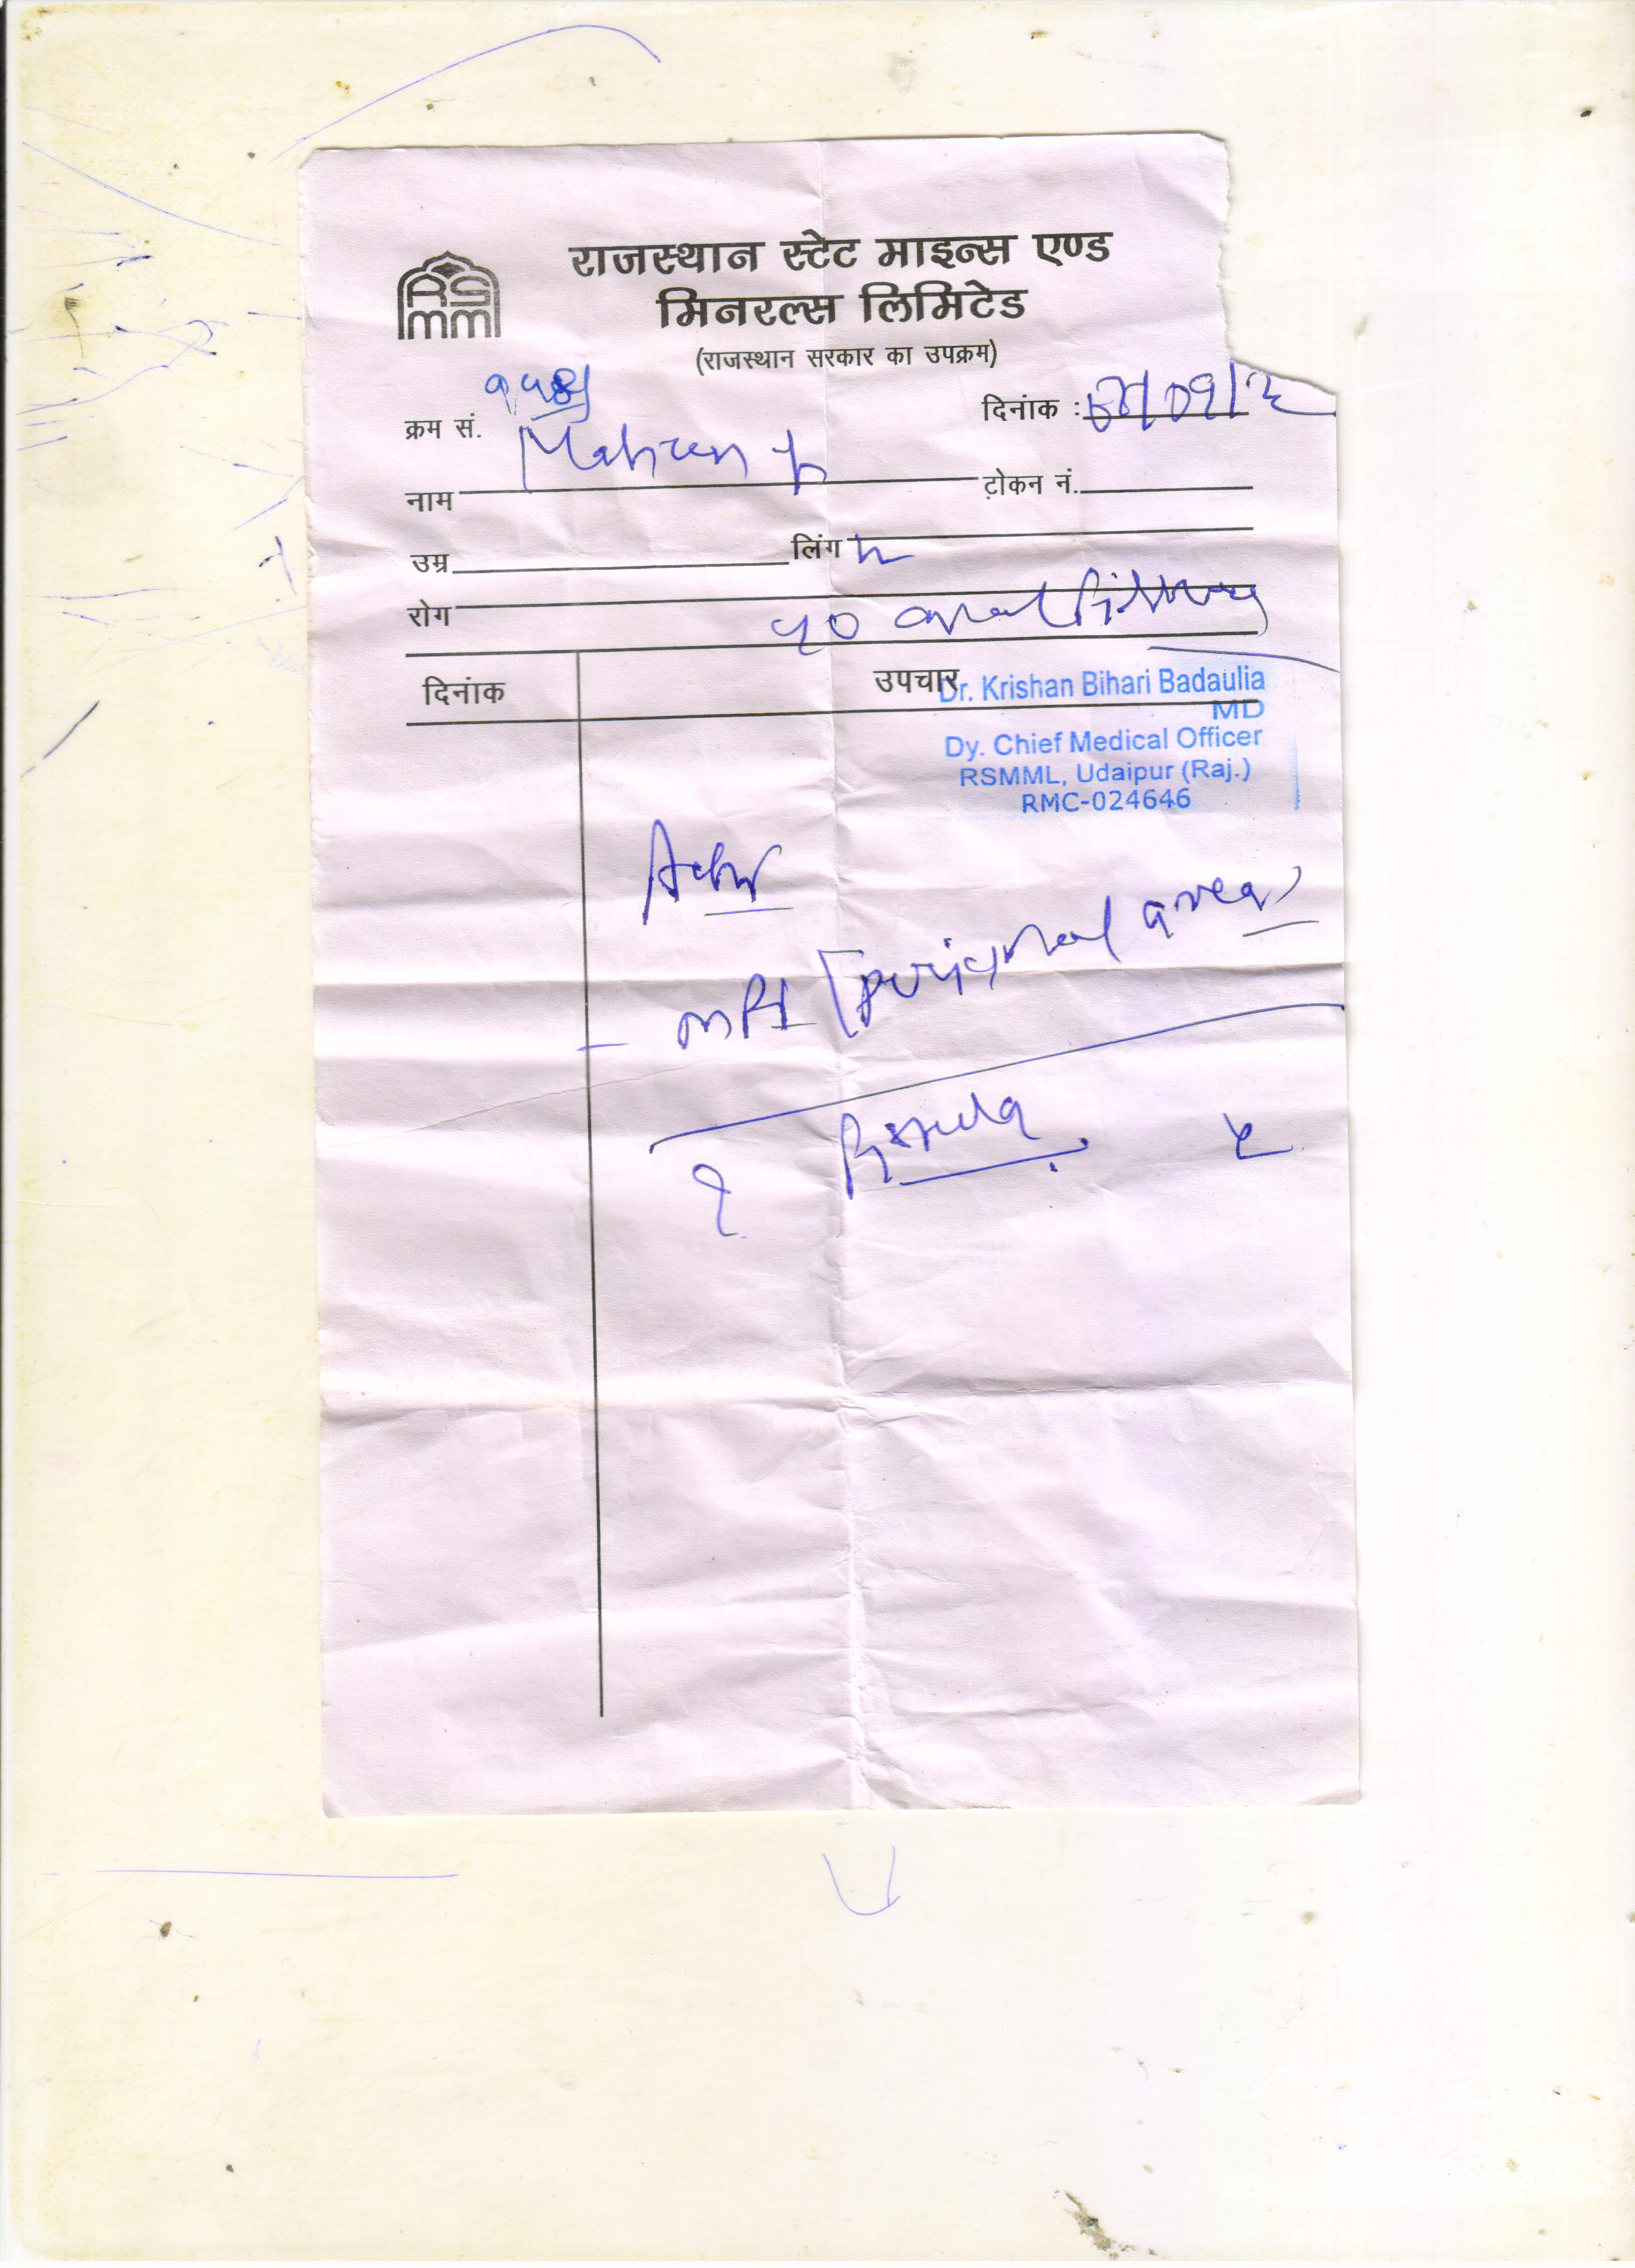 राजस्थान स्टेट माइन्स एण्ड
मिनरल्स लिमिटेड
(राजस्थान सरकार का उपक्रम)
RSMM
क्रम सं.
दिनांक : /09/2
नाम
टोकन नं.
उम्र लिंग
रोग
दिनांक उपचार
Dr. Krishan Bihari Badaulia
MD
Dy. Chief Medical Officer
RSMML, Udaipur (Raj.)
RMC-024646
Adv
- MRI [perianal area]
? Fistula